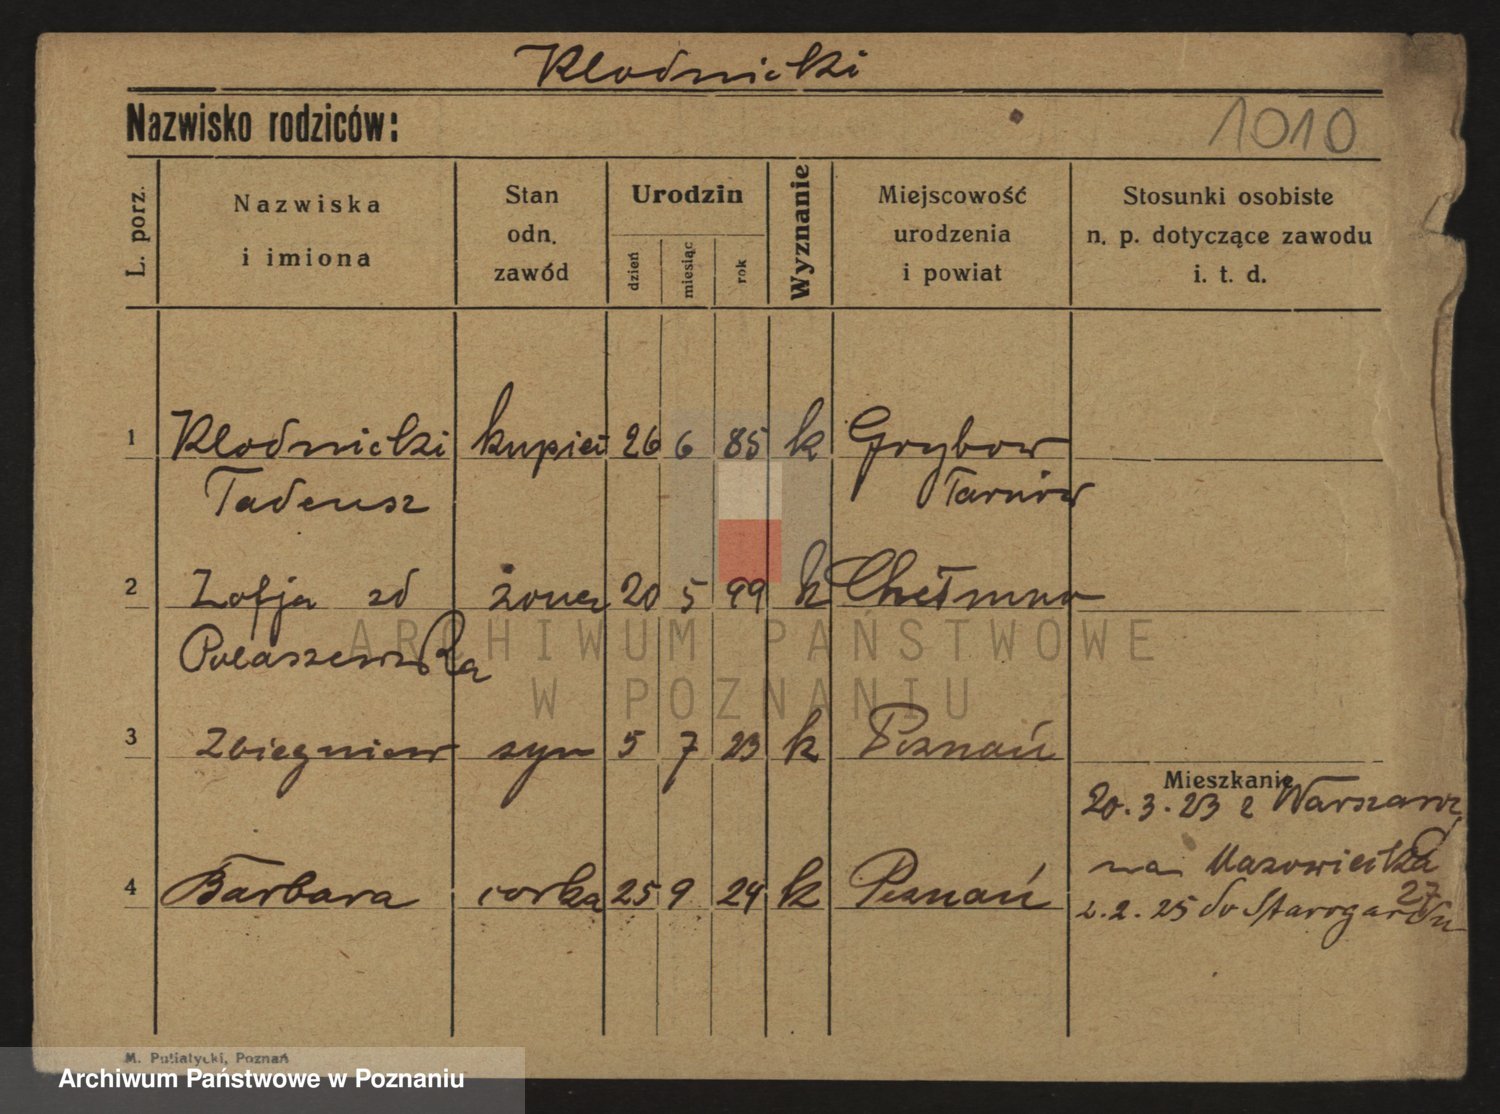 Kłodnicki
Nazwisko rodziców:
1010
L. porz.
Nazwiska
i imiona
Stan
odn.
zawód
Urodzin
dzień
miesiąc
rok
Wyznanie
Miejscowość
urodzenia
i powiat
Stosunki osobiste
n. p. dotyczące zawodu
i. t. d.
1 Kłodnicki kupiec 26 6 85 k Grybow
Tadeusz Tarnów
2 Zofja zd żona 20 5 99 k Chełmno
Połaszewska
ARCHIWUM PAŃSTWOWE
W POZNANIU
3 Zbiegniew syn 5 7 23 k Poznań
Mieszkanie
20.3.23 z Warszawy
na Mazowiecką
27
4 Barbara corka 25 9 24 k Poznań
2.2.25 do Starogardu
M. Putiatycki, Poznań
Archiwum Państwowe w Poznaniu